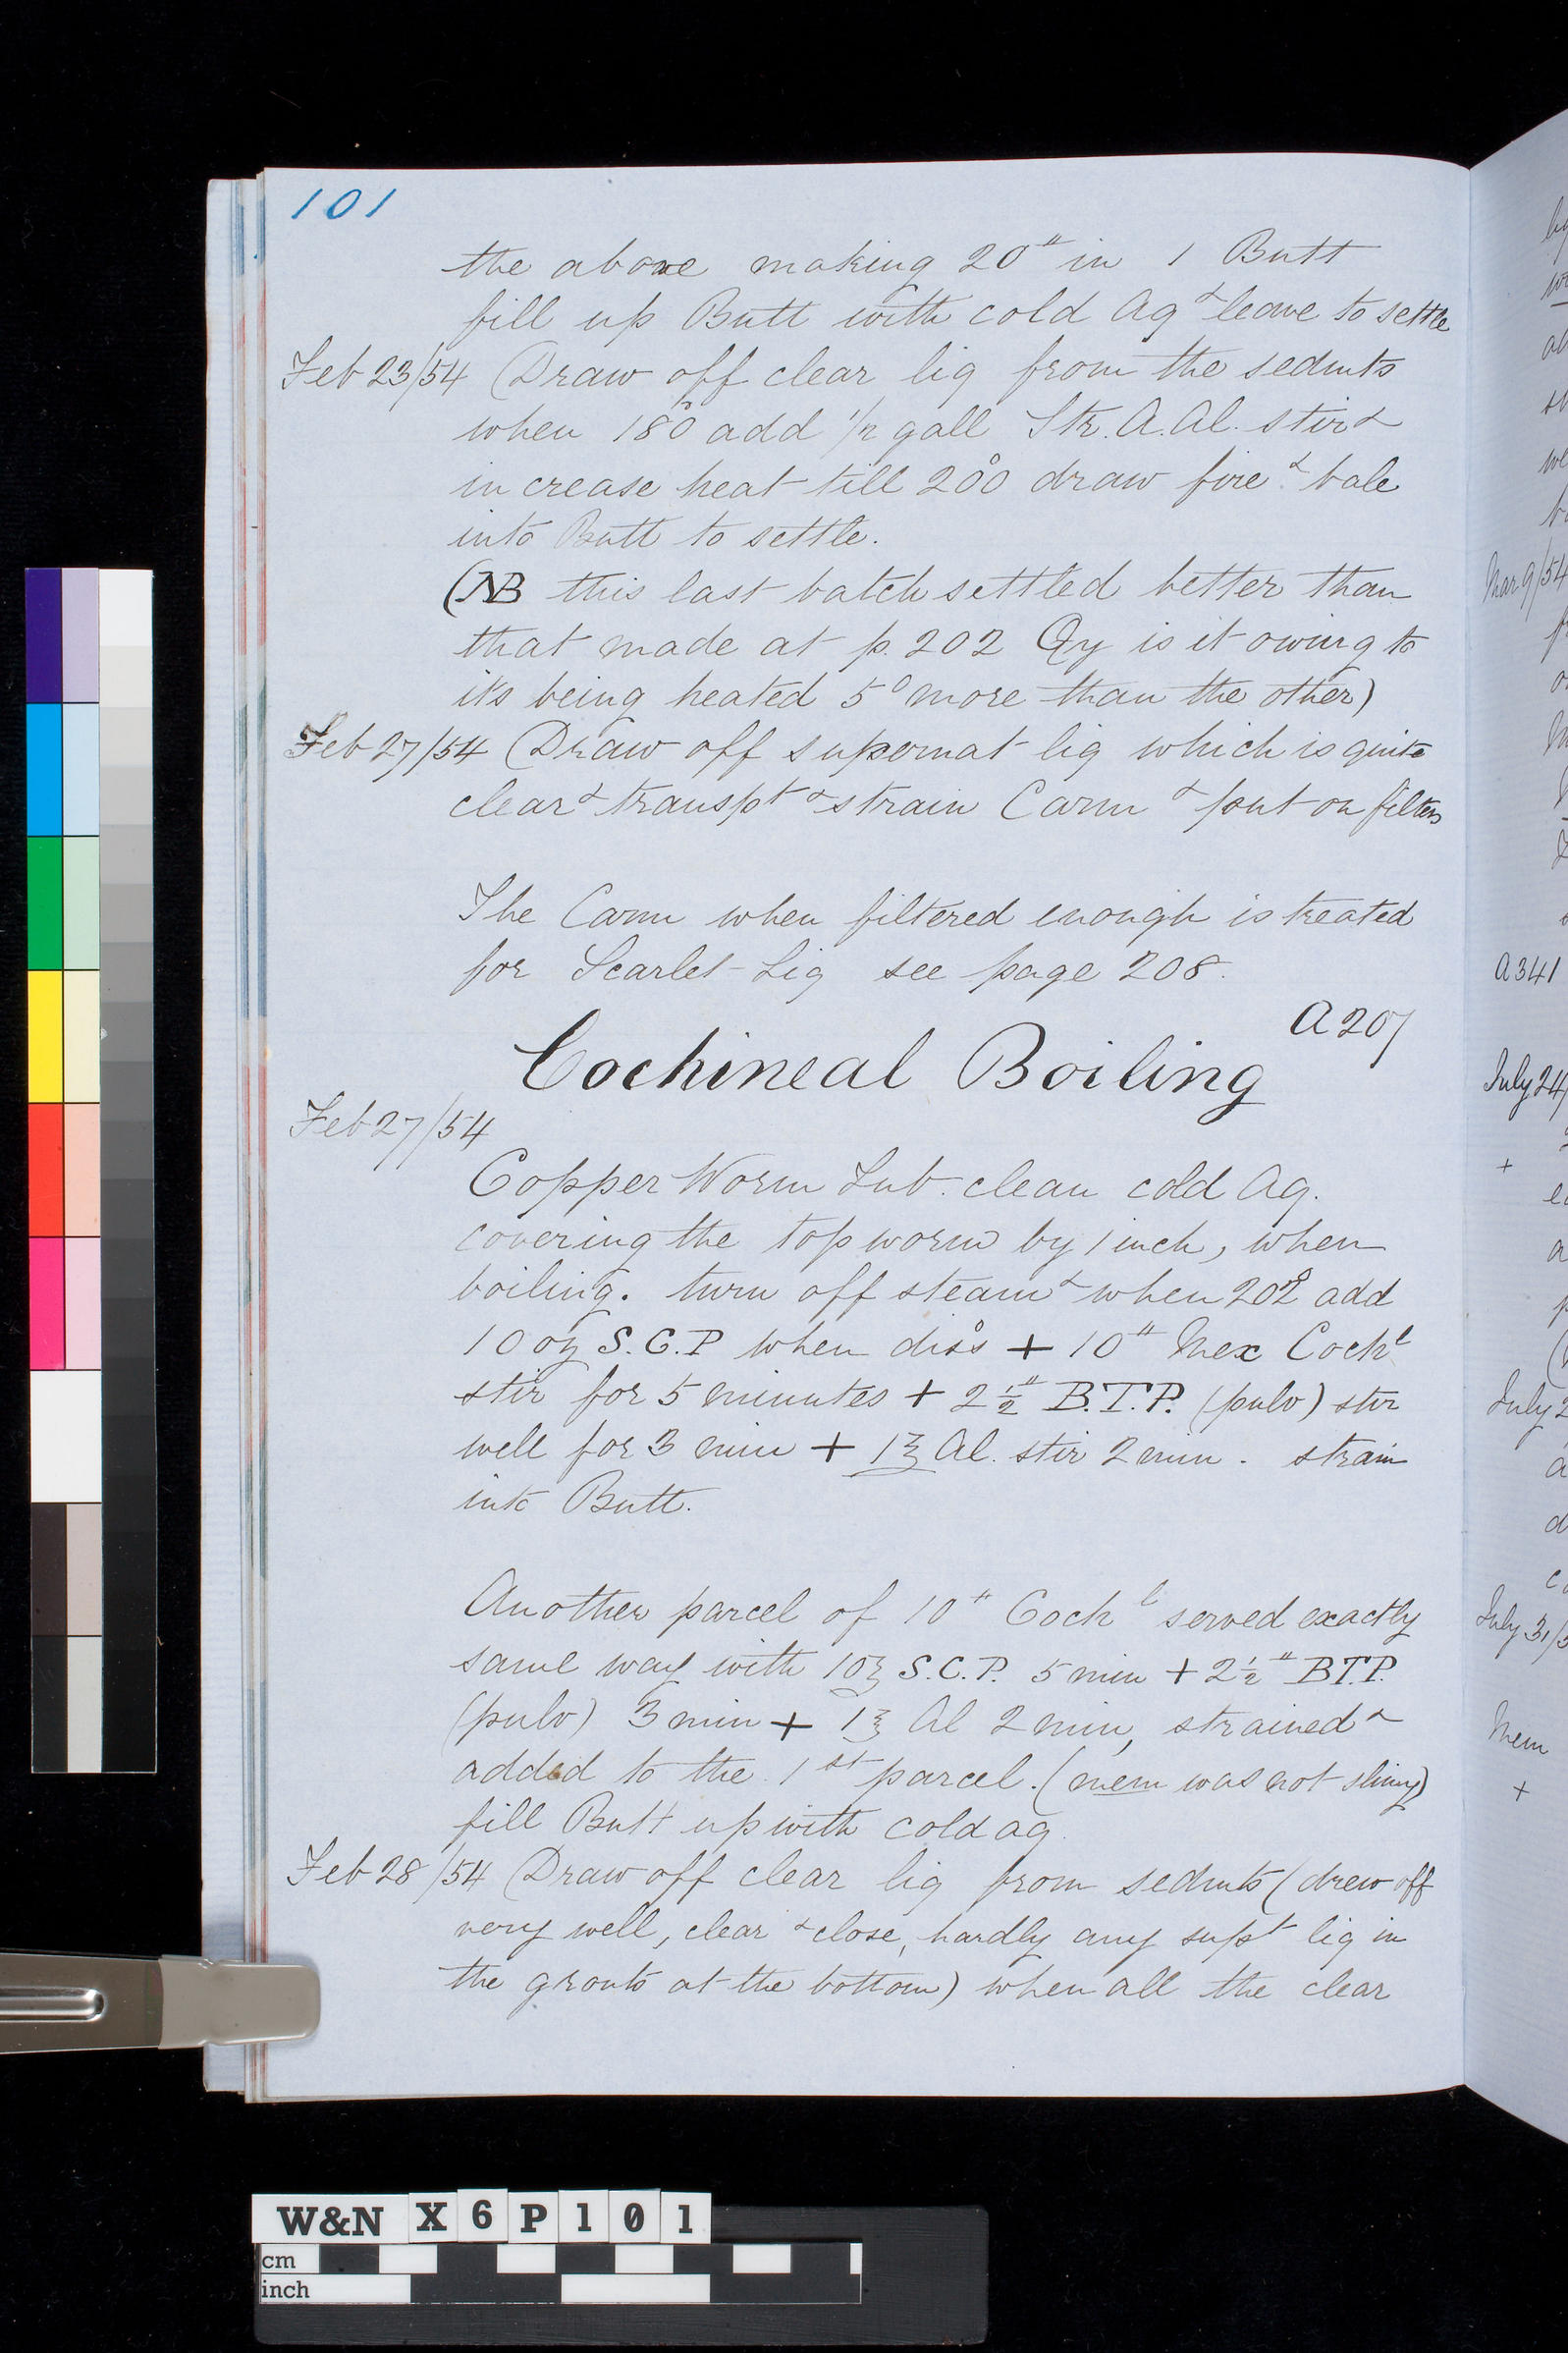 101
the above making 20" in 1 Butt
fill up Butt with cold Aq & leave to settle
Feb 23/54 (Draw off clear liq from the sedmts
when 180° add 1/2 gall Str. A. Al. stir &
increase heat till 200° draw fire & bale
into Butt to settle.
(NB this last batch settled better than
that made at p. 202 Qy is it owing to
its being heated 5° more than the other)
Feb 27/54 (Draw off supernat liq which is quite
clear & transpt & strain Carm & put on filters
The Carm when filtered enough is treated
for Scarlet Liq see page 208.
A 207
Cochineal Boiling
Feb 27/54
Copper Worm Tub. clean cold Aq.
covering the top worm by 1 inch, when
boiling. turn off steam & when 202° add
10 oz S.C.P when diss + 10" Mex Cochl
stir for 5 minutes + 2 1/2" B.T.P. (pulv) stir
well for 3 min + 1℥ Al. stir 2 min. strain
into Butt.
Another parcel of 10" Cochl served exactly
same way with 10℥ S.C.P. 5 min + 2 1/2" BTP.
(pulv) 3 min + 1℥ Al 2 min, strained &
added to the 1st parcel. (mem was not slimy)
fill Butt up with cold aq.
Feb 28/54 (Draw off clear liq from sedmts (drew off
very well, clear & close, hardly any supt liq in
the grouts at the bottom) when all the clear
Mar 9/54
A 341
July 24/
+
July 2
July 31/5
Mem
+
W&N X 6 P 1 0 1
cm
inch